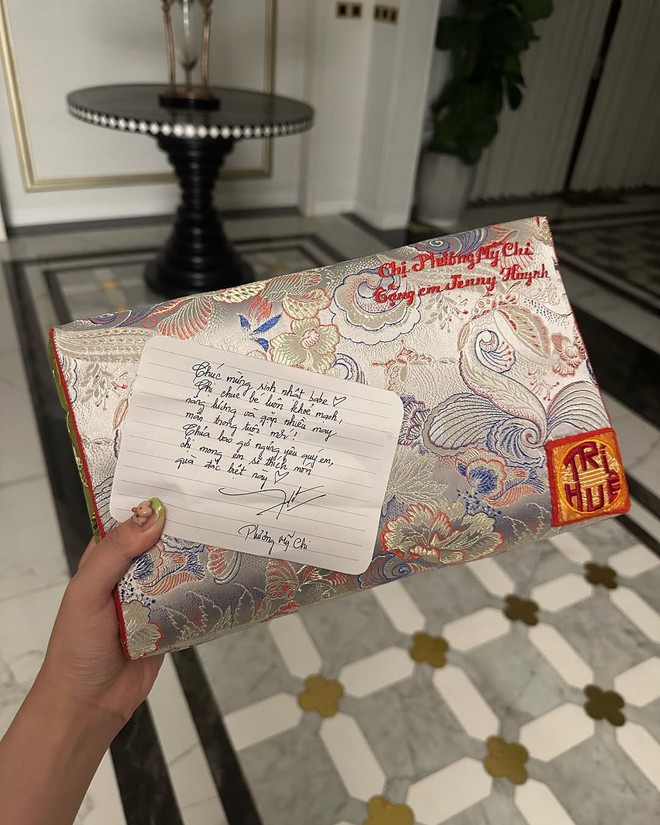 Chị Phương Mỹ Chi
Tặng em Jenny Huỳnh
Chúc mừng sinh nhật babe ♡
Chị chúc bé luôn khoẻ mạnh,
năng lượng và gặp nhiều may
mắn trong tuổi mới!
Chưa bao giờ ngưng yêu quý em,
chị mong em sẽ thích món
quà đặc biệt này ♡
Phương Mỹ Chi
TRÍ
HUỆ